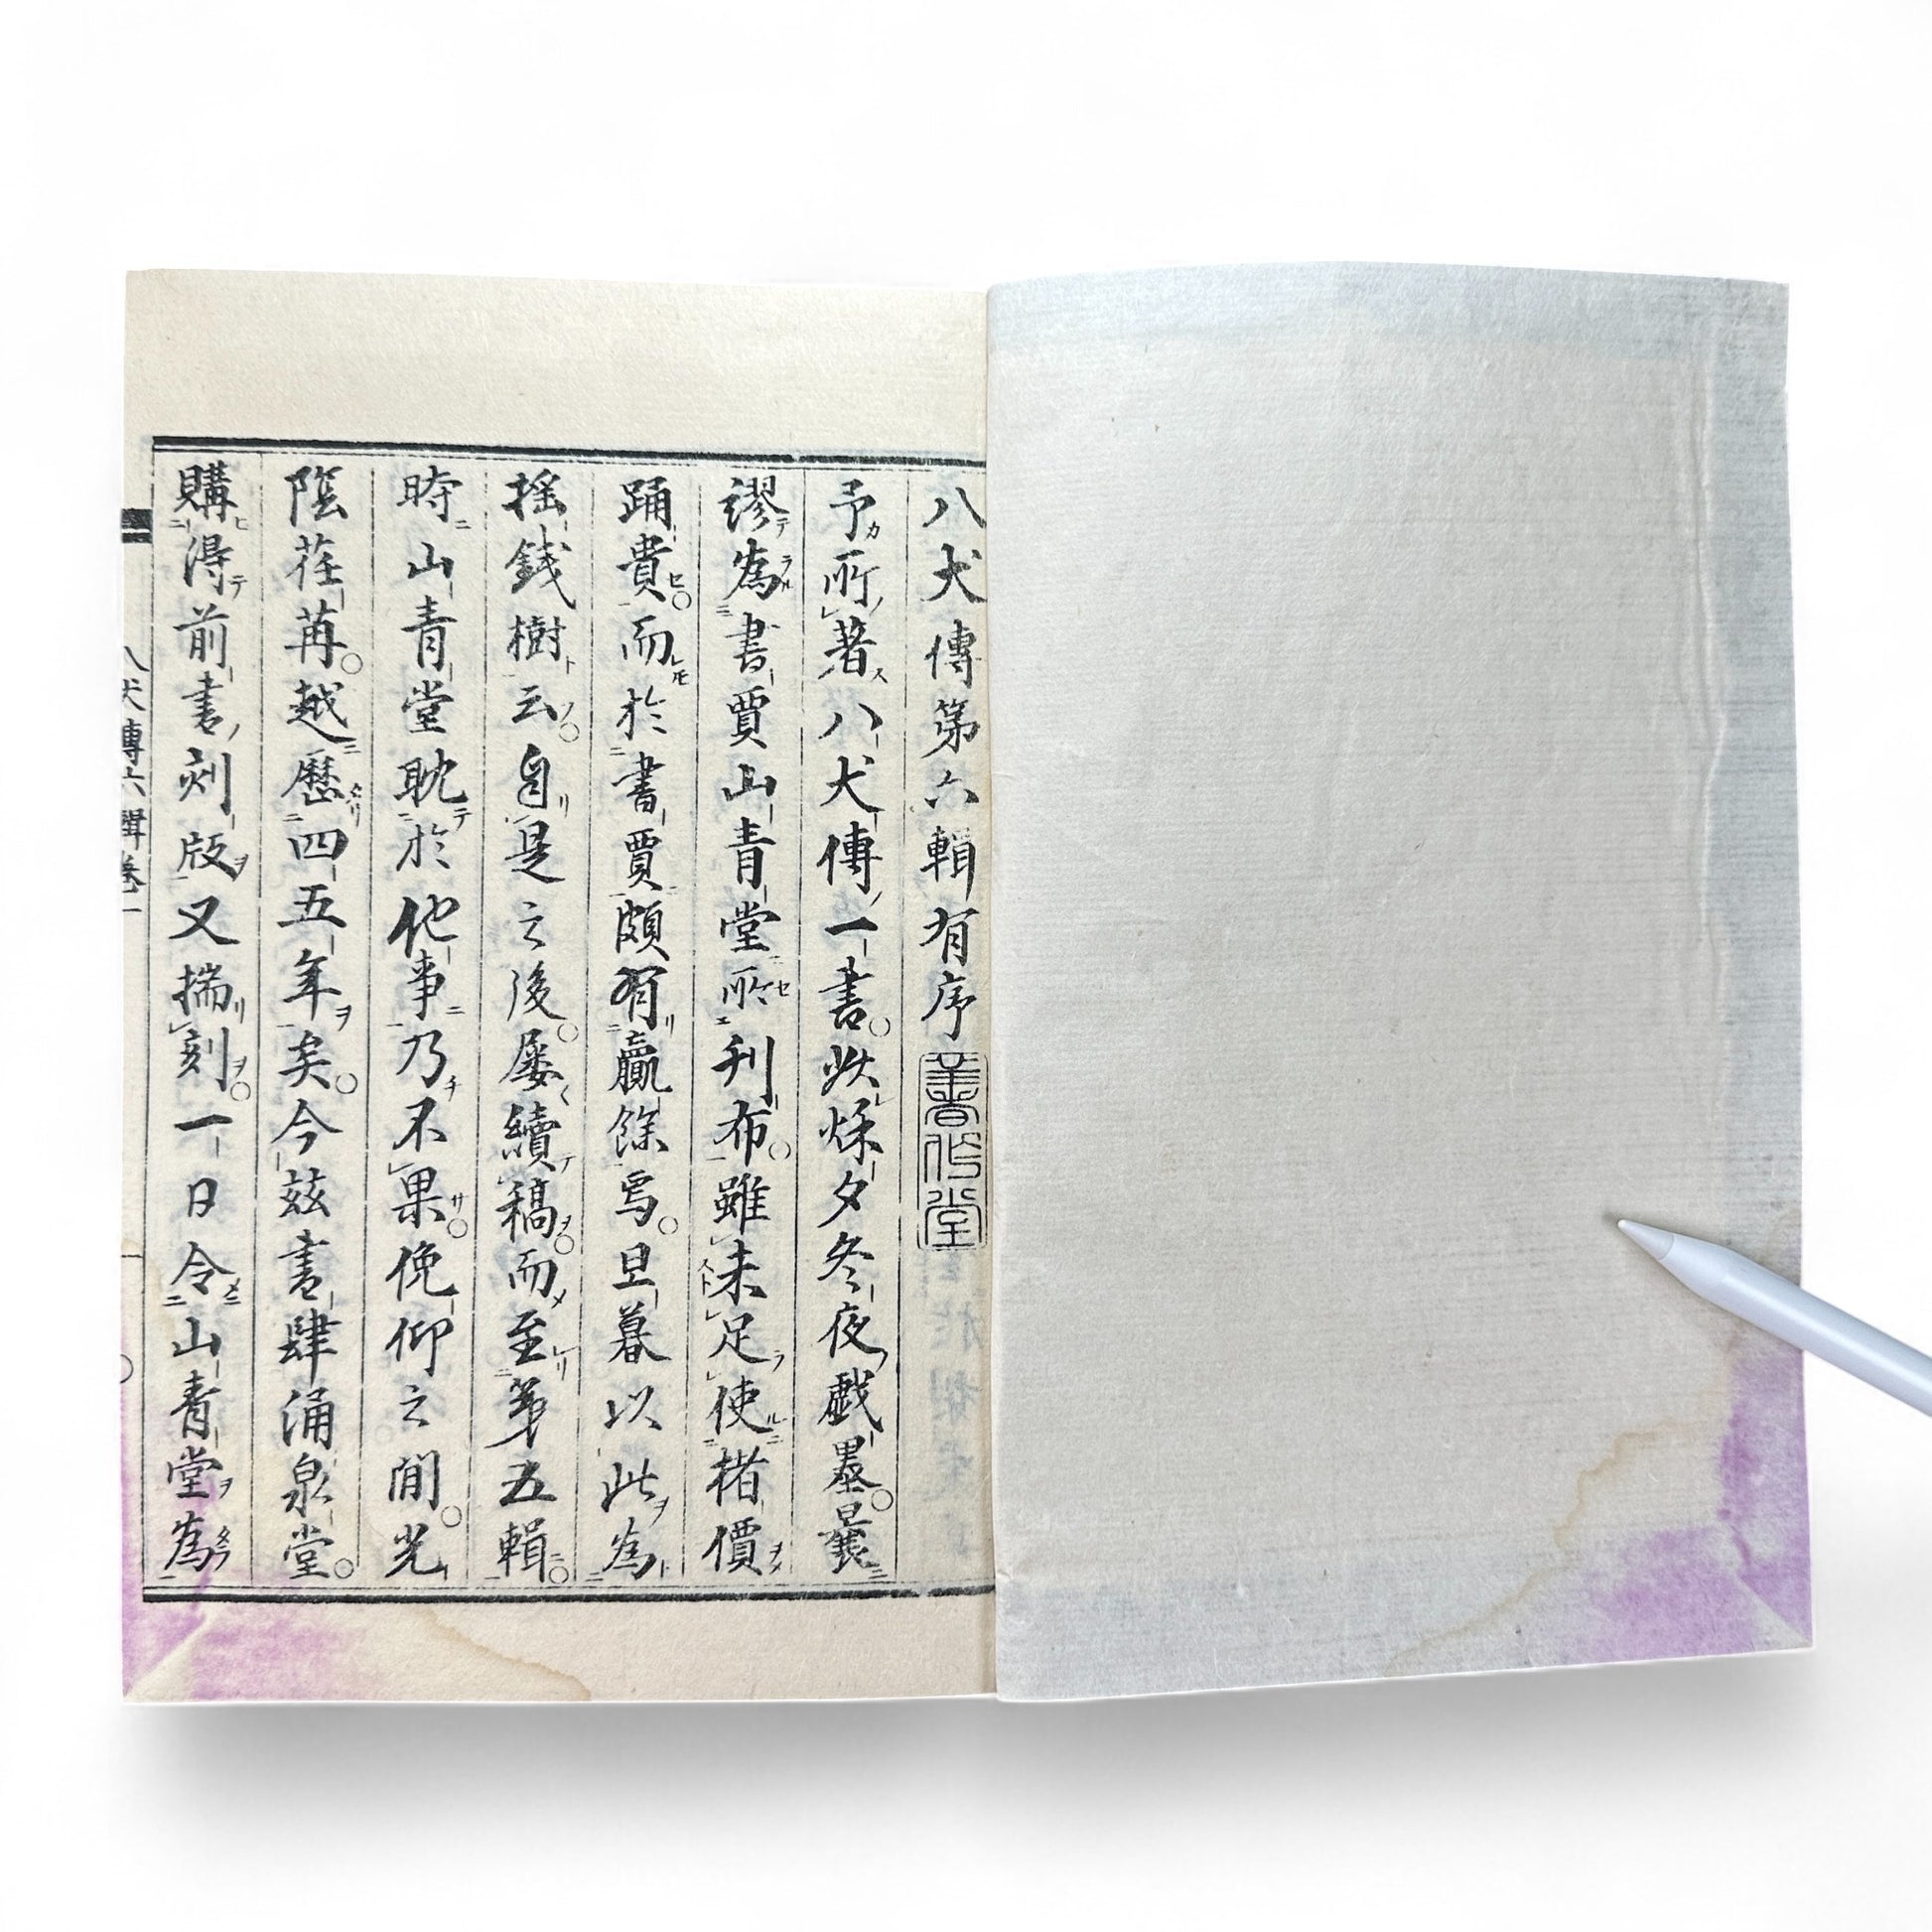 八犬傳第六輯有序
予所著八犬傳一書秋䆋夕冬夜戲墨曩
謬為書賈山青堂所刊布雖未足使楮價
踊貴而於書賈頗有贏餘焉旦暮以此為
搖錢樹云自是之後屡續稿而至第五輯
時山青堂耽於他事乃不果俛仰之間光
陰荏苒越歷四五年矣今玆書肆涌泉堂
購得前書刻版又揣刻一日令山青堂為
八犬傳六輯卷一